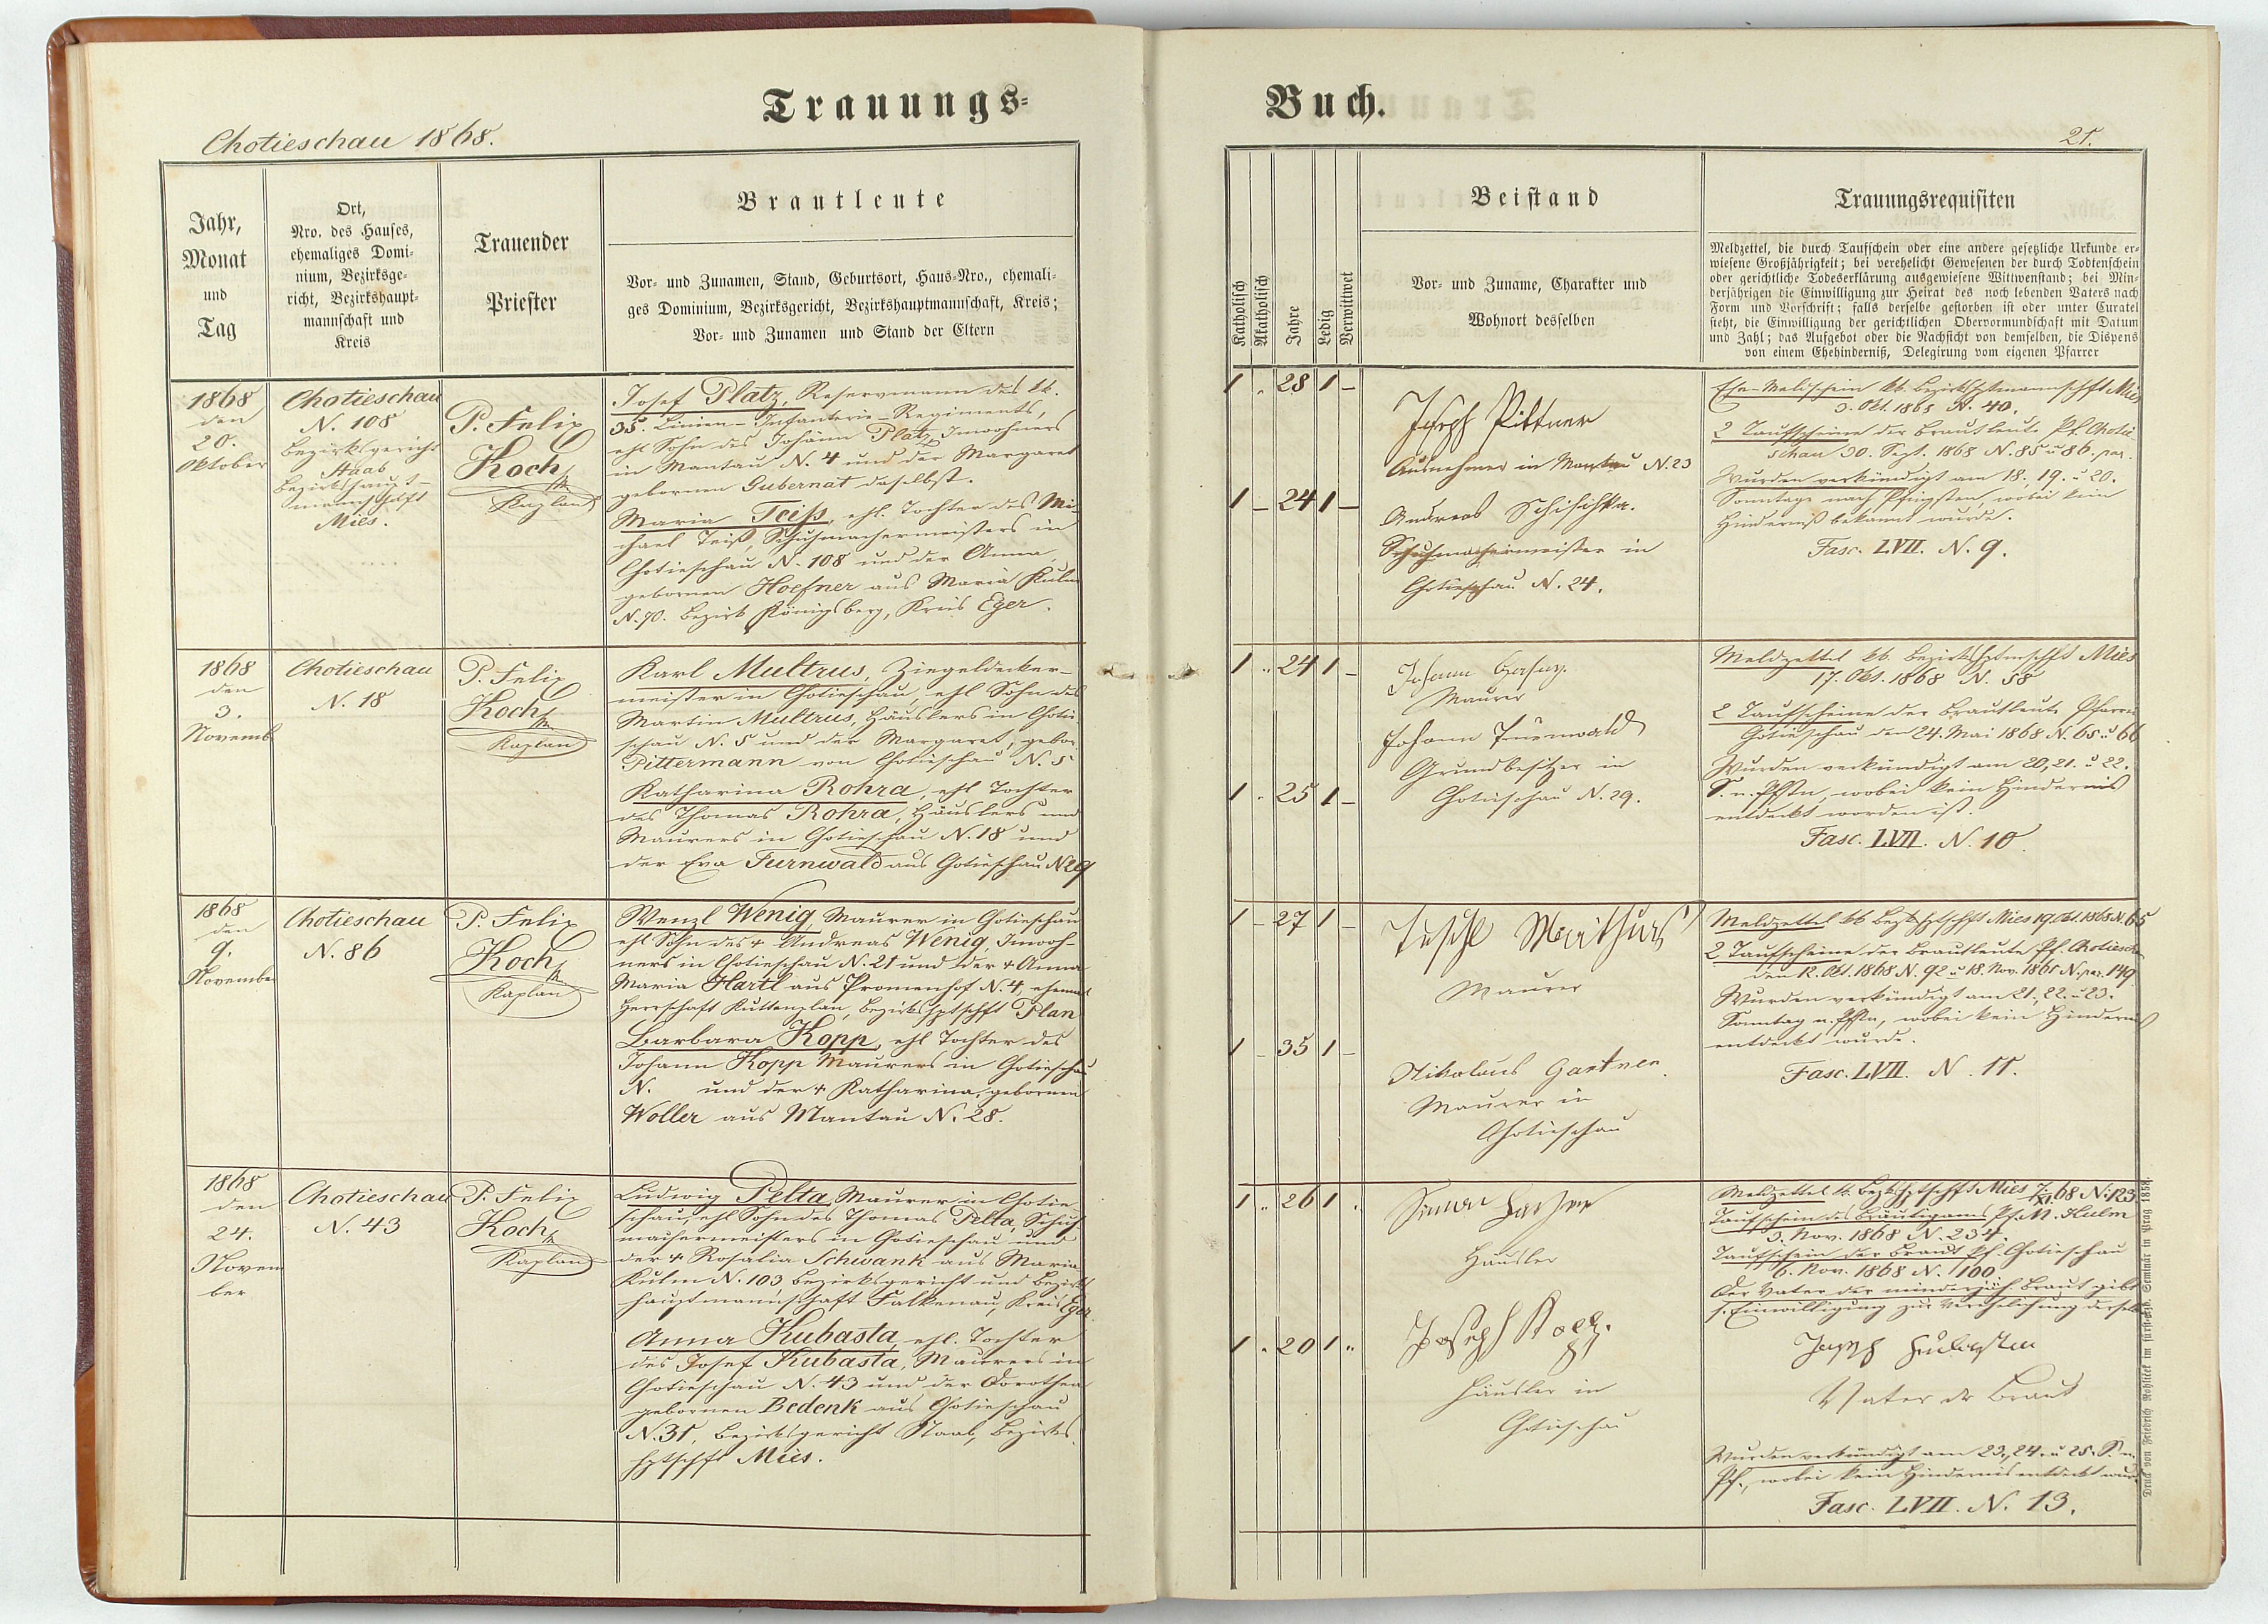 Trauungs-
Chotieschau 1868.
Jahr,
Monat
und
Tag
Ort,
Nro. des Hauses,
ehemaliges Domi-
nium, Bezirksge-
richt, Bezirkshaupt-
mannschaft und
Kreis
Trauender
Priester
Brautleute
Vor- und Zunamen, Stand, Geburtsort, Haus-Nro., ehemali-
ges Dominium, Bezirksgericht, Bezirkshauptmannschaft, Kreis;
Vor- und Zunamen und Stand der Eltern
1868
den
20.
Oktober
Chotieschau
N. 108
Bezirksgericht
Staab
Bezirkshaupt-
mannschaft
Mies.
P. Felix
Koch
Kaplan
Josef Platz, Reservmann des kk.
35. Linien-Infanterie-Regiments,
ehl Sohn des Johann Platz Inwohners
in Mantau N. 4 und der Margaret
gebornen Gubernat daselbst.
Maria Teiß, ehl. Tochter des Mi-
chael Teiß, Schuhmachermeisters in
Chotieschau N. 108 und der Anna
gebornen Hoefner aus Maria Kulm
N. 70. Bezirk Königsberg, Kreis Eger.
1868
den
3.
Novemb
Chotieschau
N. 18
P. Felix
Koch
Kaplan
Karl Multrus, Ziegeldecker-
meister in Chotieschau, ehl Sohn des
Martin Multrus, Häuslers in Chotie-
schau N. 5 und der Margaret, gebor.
Pittermann von Chotieschau N. 5
Katharina Rohra, ehl Tochter
des Thomas Rohra, Häuslers und
Maurers in Chotieschau N. 18 und
der Eva Turnwald aus Chotieschau N 29
1868
den
9.
November
Chotieschau
N. 86
P. Felix
Koch
Kaplan
Wenzl Wenig, Maurer in Chotieschau
ehl Sohn des + Andreas Wenig, Inwoh-
ners in Chotieschau N. 21 und der + Anna
Maria Hartl aus Promenhof N. 4, ehemal
Herrschaft Kuttenplan, Bezirkshptschft Plan
Barbara Kopp, ehl Tochter des
Johann Kopp Maurers in Chotieschau
N. und der + Katharina, gebornen
Woller aus Mantau N. 28.
1868
den
24.
Novem
ber
Chotieschau
N. 43
P. Felix
Koch
Kaplan
Ludwig Pelta, Maurer in Chotie-
schau, ehl Sohn des Thomas Pelta, Schuh
machermeisters in Chotieschau und
der + Rosalia Schwank aus Maria
Kulm N. 103 Bezirksgericht und Bezirks
hauptmannschaft Falkenau, Kreis Eger.
Anna Kubasta, ehl. Tochter
des Josef Kubasta, Maurers in
Chotieschau N. 43 und der Dorothea
gebornen Bedenk aus Chotieschau
N. 31, Bezirksgericht Staab, Bezirks
hptschft Mies.
Buch.
21.
Katholisch
Akatholisch
Jahre
Ledig
Verwittwet
Beistand
Vor- und Zuname, Charakter und
Wohnort desselben
Trauungsrequisiten
Meldzettel, die durch Taufschein oder eine andere gesetzliche Urkunde er-
wiesene Großjährigkeit; bei verehelicht Gewesenen der durch Todtenschein
oder gerichtliche Todeserklärung ausgewiesene Wittwenstand; bei Min-
derjährigen die Einwilligung zur Heirat des noch lebenden Vaters nach
Form und Vorschrift; falls derselbe gestorben ist oder unter Curatel
steht, die Einwilligung der gerichtlichen Obervormundschaft mit Datum
und Zahl; das Aufgebot oder die Nachsicht von demselben, die Dispens
von einem Ehehinderniß, Delegirung vom eigenen Pfarrer
1 . 28 1 –
1 – 24 1 –
Joseph Pittner
Ausnehmer in Mantau N. 23
Andreas Schischka.
Schuhmachermeister in
Chotieschau N. 24.
Ehe-Meldschein kk Bezirkshptmannschft Mies
3. Okt. 1868 N. 40.
2 Taufscheine der Brautleute Pf Chotie
schau 30. Sept. 1868 N. 85 u 86. par.
Wurden verkündigt am 18., 19. u 20.
Sonntage nach Pfingsten, wobei kein
Hinderniß bekannt wurde.
Fasc. LVII. N. 9.
1 .. 24 1 –
1 . 25 1 –
Johann
Maurer
Johann Turnwald
Grundbesitzer in
Chotieschau N. 29.
Meldzettel kk. Bezirkshptmschft Mies
17. Okt. 1868 N. 58
2 Taufscheine der Brautleute Pfarre
Chotieschau den 24. Mai 1868 N. 65 u 66
Wurden verkündigt am 20, 21. u 22.
S. n. Pfstn, wobei kein Hinderniß
entdeckt worden ist.
Fasc. LVII. N. 10.
1 – 27 1 –
1 – 35 1 –
Teschl Mathias
Maurer
Nikolaus Gartner.
Maurer in
Chotieschau
Meldzettel kk Bezkhptschft Mies 19 Okt. 1868 N. 65
2 Taufscheine der Brautleute Pf. Chotiesch
den 12. Okt. 1868 N. 92 u 18. Nov. 1865 N. par. 149
Wurden verkündigt am 21., 22. u 23.
Sonntag n. Pfstn, wobei kein Hinderniß
entdeckt wurde.
Fasc. LVII. N. 11.
1 .. 26 1 .
1 . 20 1 ..
Häusler
Joseph Kopp.
Häusler in
Chotieschau
Meldzettel k. Bezkhptschft Mies 7/XI 68 N. 123
Taufschein des Bräutigams Pf. M. Kulm
3. Nov. 1868 N. 234.
Taufschein der Braut Pf. Chotieschau
6. Nov. 1868 N. 100
Der Vater der minderjäh. Braut gibt
s. Einwilligung zur Verehelichung derselb
Joseph
Vater der Braut
Wurden verkündigt am 23., 24. u 25. S. n.
Pf., wobei kein Hinderniß entdeckt wurd
Fasc. LVII. N. 13.
Druck von Friedrich Rohliček im fürst-erzb. Seminär in Prag 1858.